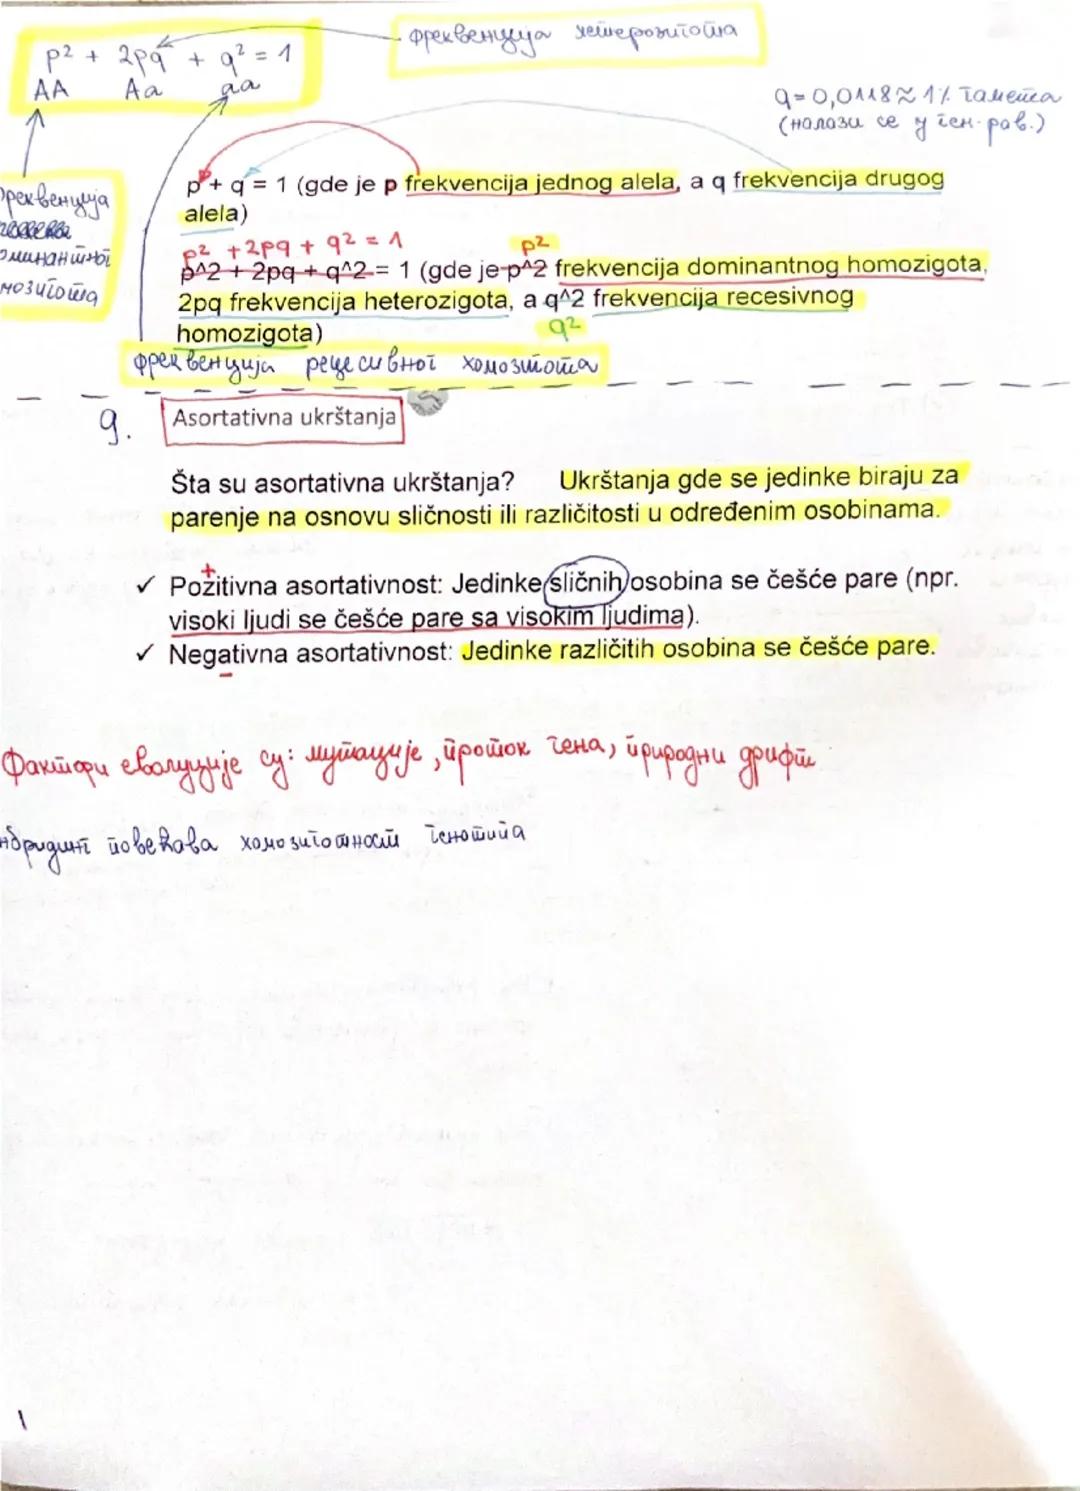 p² + 2pq + q² = 1
AA Aa aa
фреквенција хетерозигота
q = 0,0118 ≈ 1% гамета
(налази се у ген. рав.)
p + q = 1 (gde je p frekvencija jednog alela, a q frekvencija drugog
alela)
p² + 2pq + q² = 1 p²
p^2 + 2pq + q^2 = 1 (gde je p^2 frekvencija dominantnog homozigota,
2pq frekvencija heterozigota, a q^2 frekvencija recesivnog
homozigota) q²
реквенција
оминантног
мозигота
фреквенција рецесивног хомозигота
9. Asortativna ukrštanja
Šta su asortativna ukrštanja? Ukrštanja gde se jedinke biraju za
parenje na osnovu sličnosti ili različitosti u određenim osobinama.
+
✓ Pozitivna asortativnost: Jedinke sličnih osobina se češće pare (npr.
visoki ljudi se češće pare sa visokim ljudima).
✓ Negativna asortativnost: Jedinke različitih osobina se češće pare.
−
Фактори еволуције су: мутације, проток гена, природни дрифт
нбридинг повећава хомозиготност генотипа